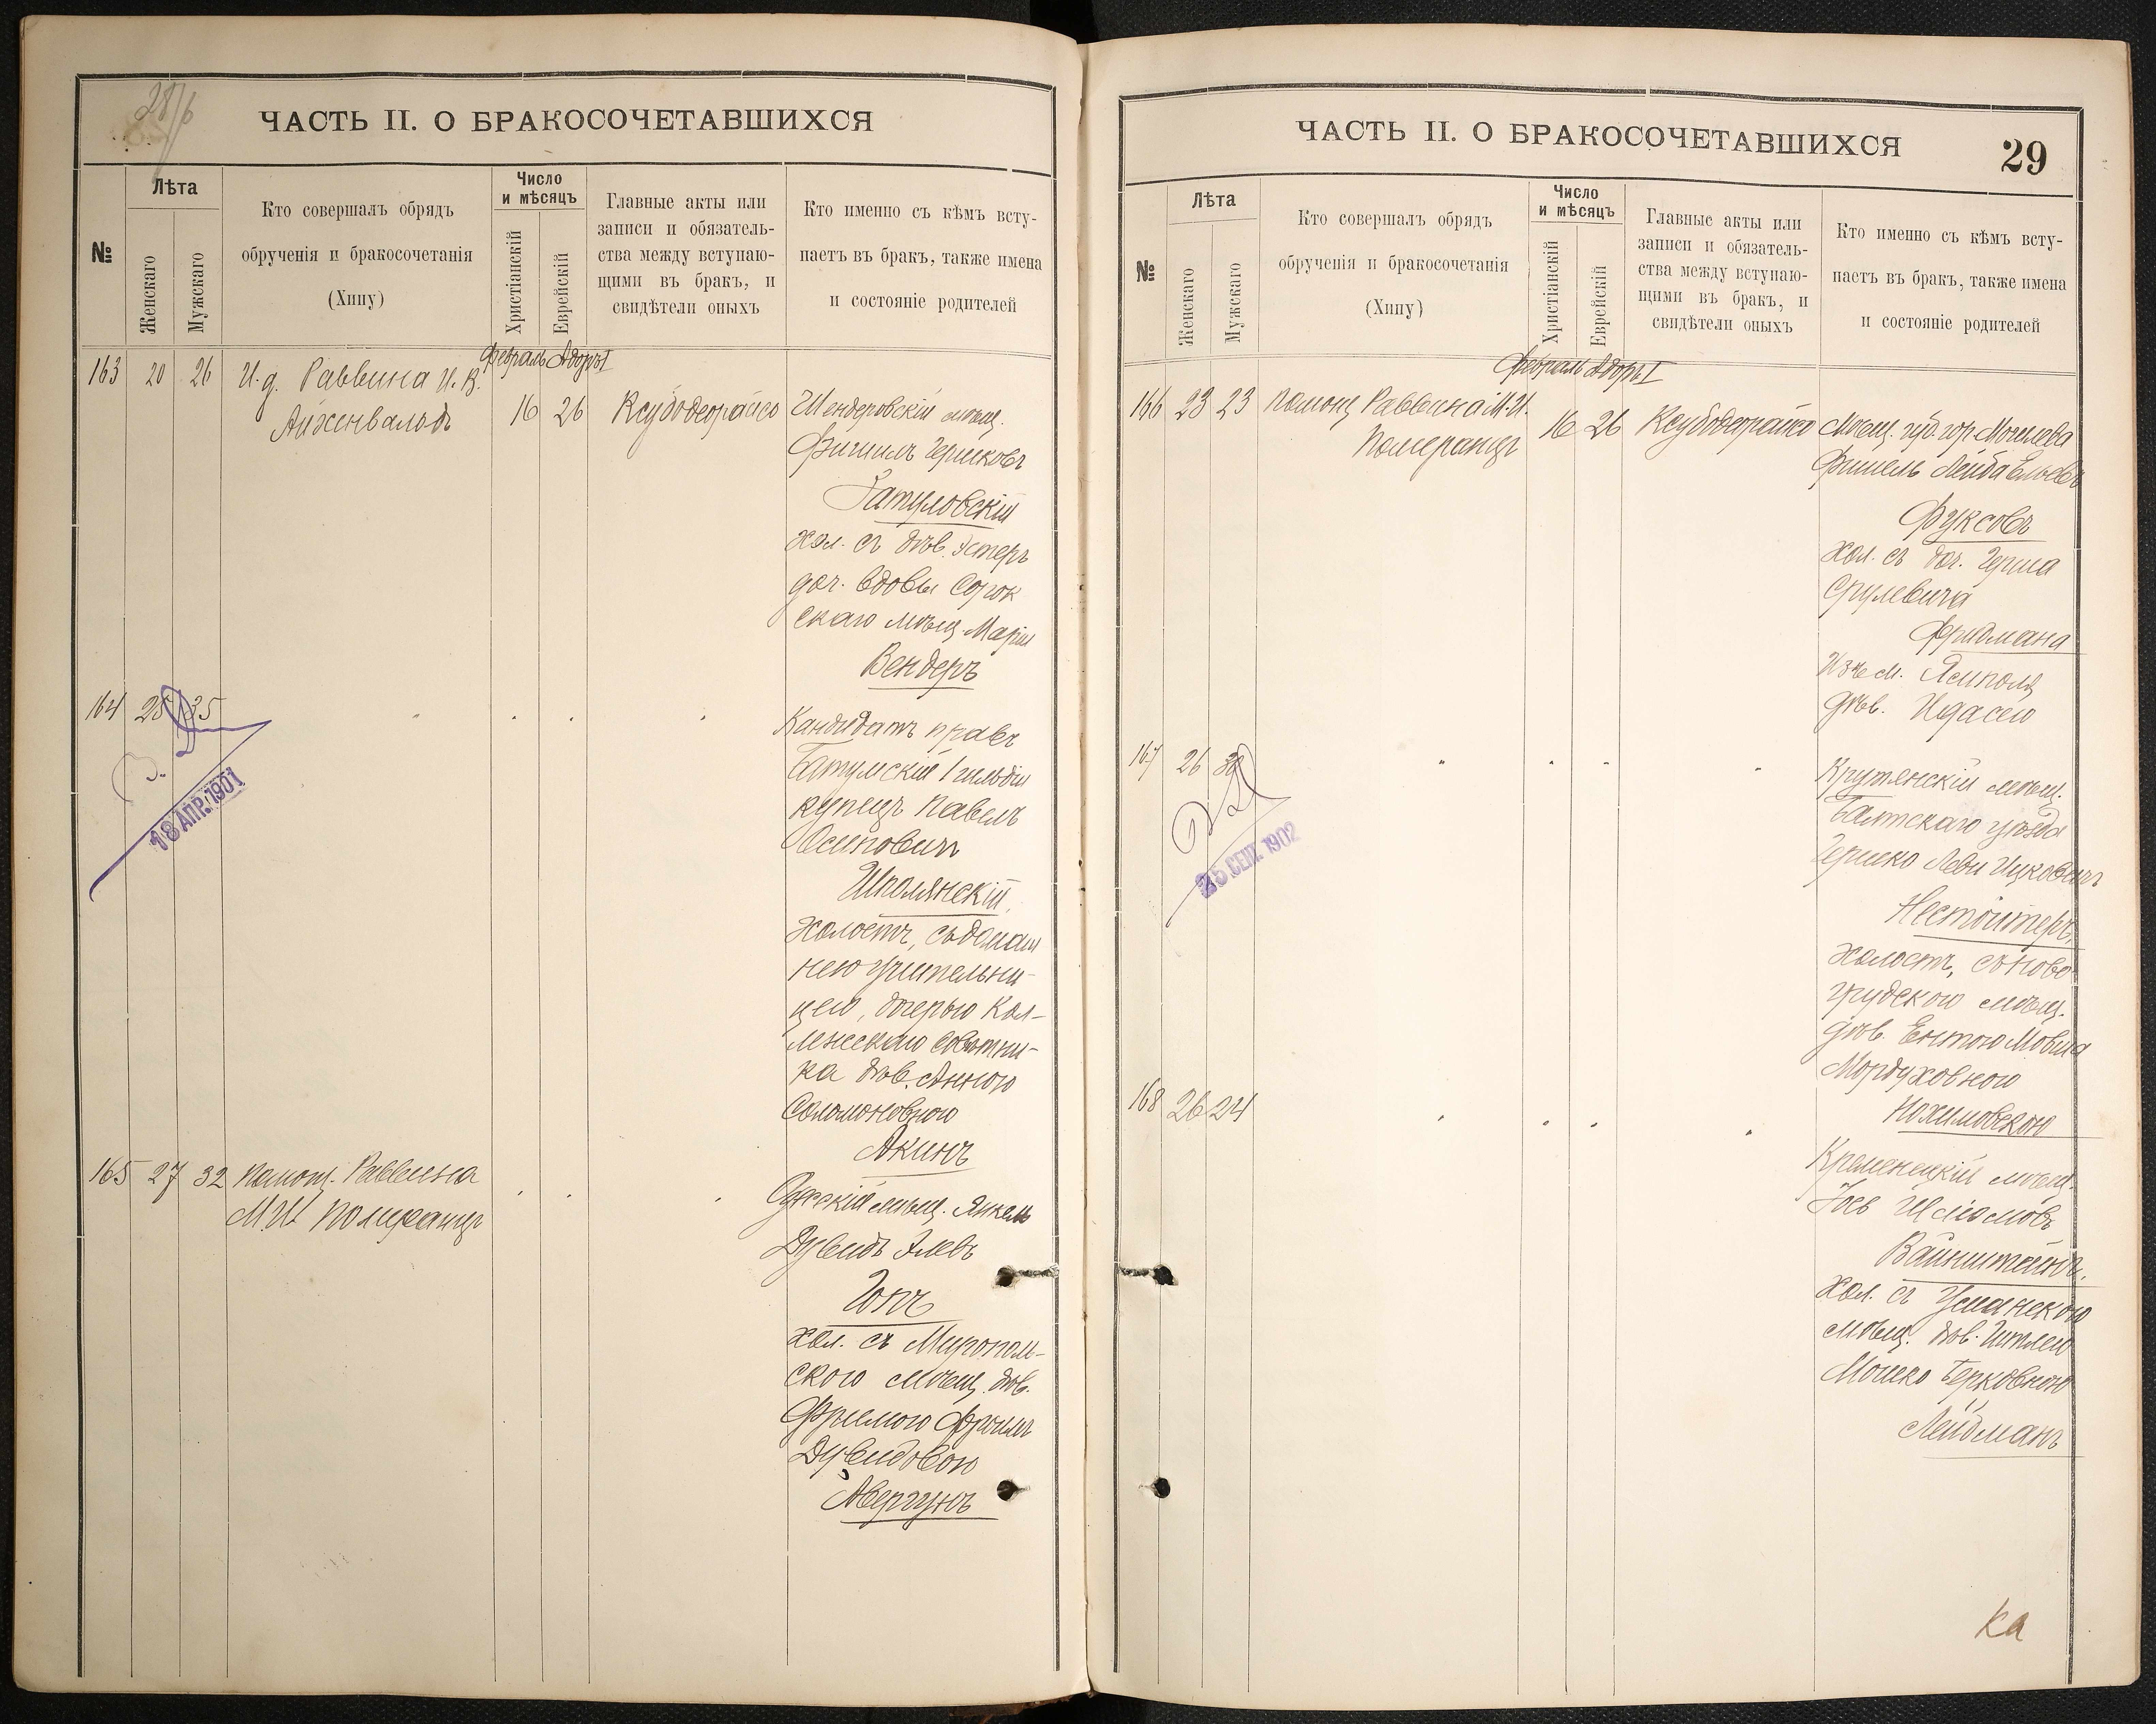 28/б
ЧАСТЬ II. О БРАКОСОЧЕТАВШИХСЯ
№
Лѣта
Женскаго
Мужскаго
Кто совершалъ обрядъ
обрученія и бракосочетанія
(Хипу)
Число
и мѣсяцъ
Христіанскій
Еврейскій
Главные акты или
записи и обязатель-
ства между вступаю-
щими въ бракъ, и
свидѣтели оныхъ
Кто именно съ кѣмъ всту-
паетъ въ бракъ, также имена
и состояніе родителей
Февраль Адоръ I
163 20 26 И. д. Раввина И. В.
Айхенвальдъ
16 26 Ксубодеорайсо
Шендеровскій мѣщ.
Фишель Гершковъ
Затуловскій
хол. съ дѣв. Эстеръ
доч. вдовы Сорок
скаго мѣщ. Маріи
Вендеръ
164 25 35 " " " "
18 АПР. 1901
Кандидатъ правъ
Батумскій 1 гильдіи
купецъ Павелъ
Осиповичъ
Шполянскій,
холостъ, съ домаш
нею учительни-
цею, дочерью Кол-
лежскаго Совѣтни-
ка дѣв. Анною
Соломоновною
Акинъ
165 27 32 Помощ. Раввина
М. И. Померанцъ
" " "
мѣщ. Янкель
Дувидъ
хол. съ Мирополь-
скою мѣщ. дѣв.
Дувидовою
Авергунъ
ЧАСТЬ II. О БРАКОСОЧЕТАВШИХСЯ
29
№
Лѣта
Женскаго
Мужскаго
Кто совершалъ обрядъ
обрученія и бракосочетанія
(Хипу)
Число
и мѣсяцъ
Христіанскій
Еврейскій
Главные акты или
записи и обязатель-
ства между вступаю-
щими въ бракъ, и
свидѣтели оныхъ
Кто именно съ кѣмъ всту-
паетъ въ бракъ, также имена
и состояніе родителей
Февраль Адоръ I
166 23 23 Помощ Раввина М. И.
Померанцъ
16 26 Ксубодеорайсо
Мѣщ. губ. гор. Могилева
Фишель Лейба Ельевъ
Фуксовъ
хол. съ доч. Герша
Срулевича
Фридмана
изъ м. Ямполя
дѣв. Идасею
167 26 30 " " " "
25 СЕН. 1902
Крутянскій мѣщ.
Балтскаго уѣзда
Гершко Леви Ицковичъ
Нестойтеръ,
холостъ, съ Ново
грудскою мѣщ.
дѣв. Ентою Мовша
Мордуховною
Нохимовскою
168 26 24 " " " "
Кременецкій мѣщ.
Іось Шліомовъ
Вайнштейнъ,
хол. съ Уманскою
мѣщ. дѣв.
Мошко Берковною
Лейдманъ
ка